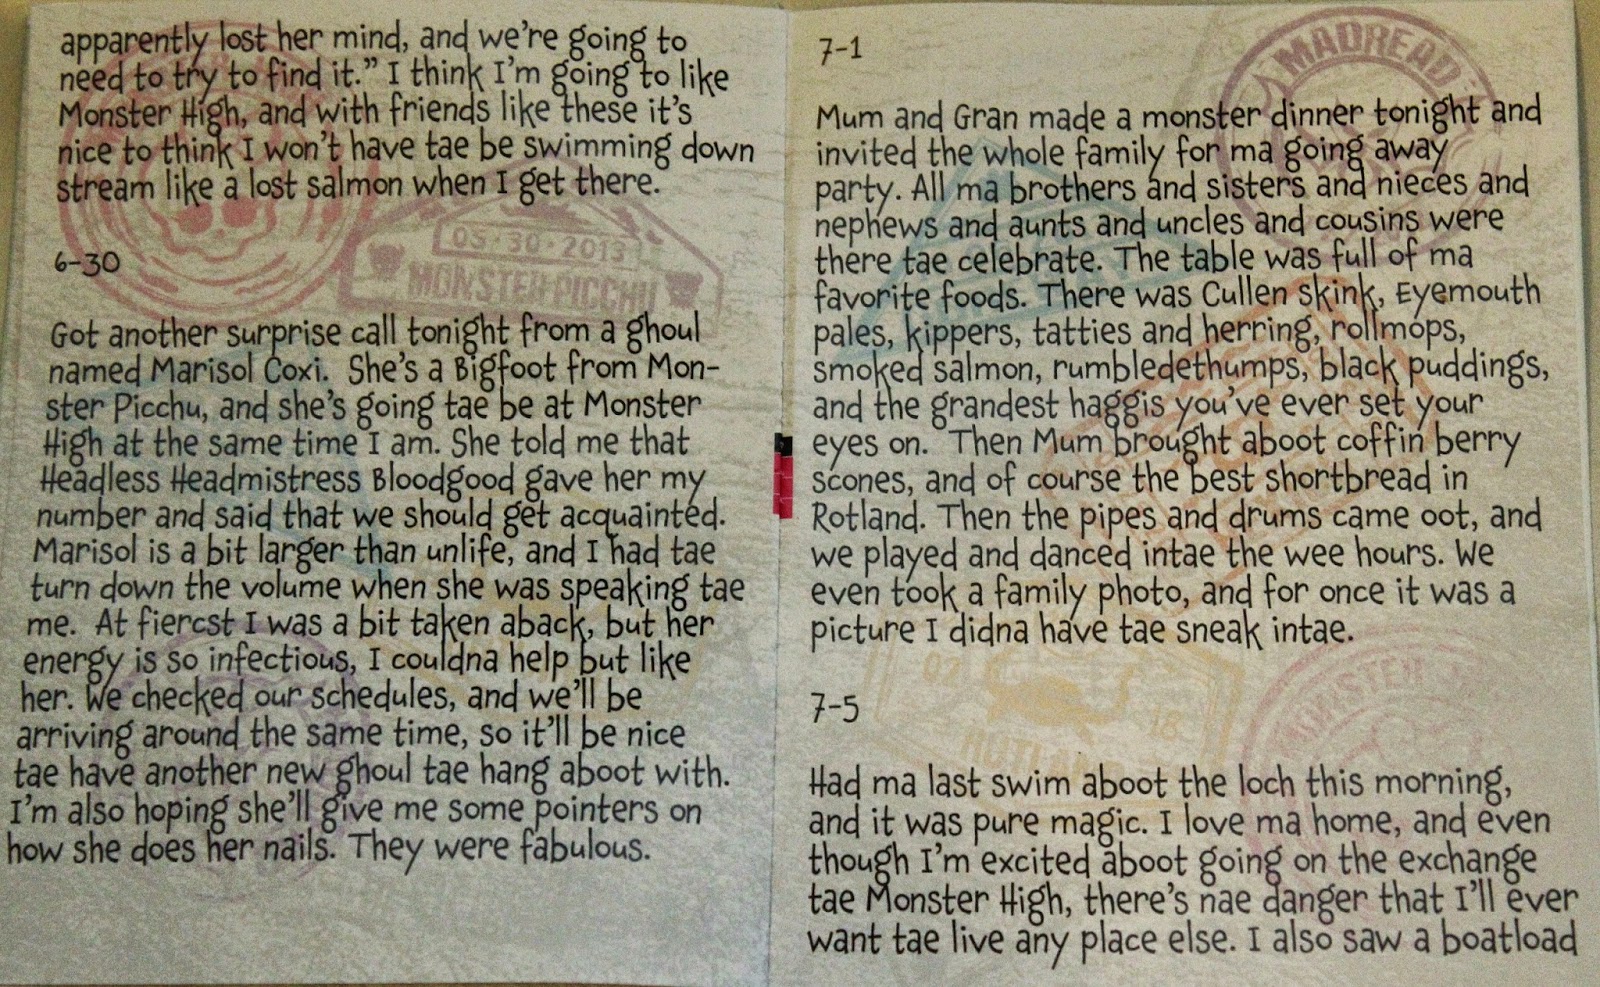 apparently lost her mind, and we're going to
need to try to find it." I think I'm going to like
Monster High, and with friends like these it's
nice to think I won't have tae be swimming down
stream like a lost salmon when I get there.
05·30·2013
MONSTER PICCHU
6-30
Got another surprise call tonight from a ghoul
named Marisol Coxi. She's a Bigfoot from Mon-
ster Picchu, and she's going tae be at Monster
High at the same time I am. She told me that
Headless Headmistress Bloodgood gave her my
number and said that we should get acquainted.
Marisol is a bit larger than unlife, and I had tae
turn down the volume when she was speaking tae
me. At fiercst I was a bit taken aback, but her
energy is so infectious, I couldna help but like
her. We checked our schedules, and we'll be
arriving around the same time, so it'll be nice
tae have another new ghoul tae hang aboot with.
I'm also hoping she'll give me some pointers on
how she does her nails. They were fabulous.
MADREAD
7-1
Mum and Gran made a monster dinner tonight and
invited the whole family for ma going away
party. All ma brothers and sisters and nieces and
nephews and aunts and uncles and cousins were
there tae celebrate. The table was full of ma
favorite foods. There was Cullen skink, Eyemouth
pales, kippers, tatties and herring, rollmops,
smoked salmon, rumbledethumps, black puddings,
and the grandest haggis you've ever set your
eyes on. Then Mum brought aboot coffin berry
scones, and of course the best shortbread in
Rotland. Then the pipes and drums came oot, and
we played and danced intae the wee hours. We
even took a family photo, and for once it was a
picture I didna have tae sneak intae.
02
18
MONSTER
7-5
Had ma last swim aboot the loch this morning,
and it was pure magic. I love ma home, and even
though I'm excited aboot going on the exchange
tae Monster High, there's nae danger that I'll ever
want tae live any place else. I also saw a boatload